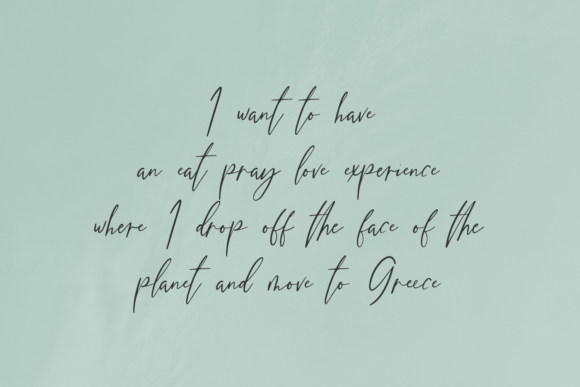 I want to have
an eat pray love experience
where I drop off the face of the
planet and move to Greece